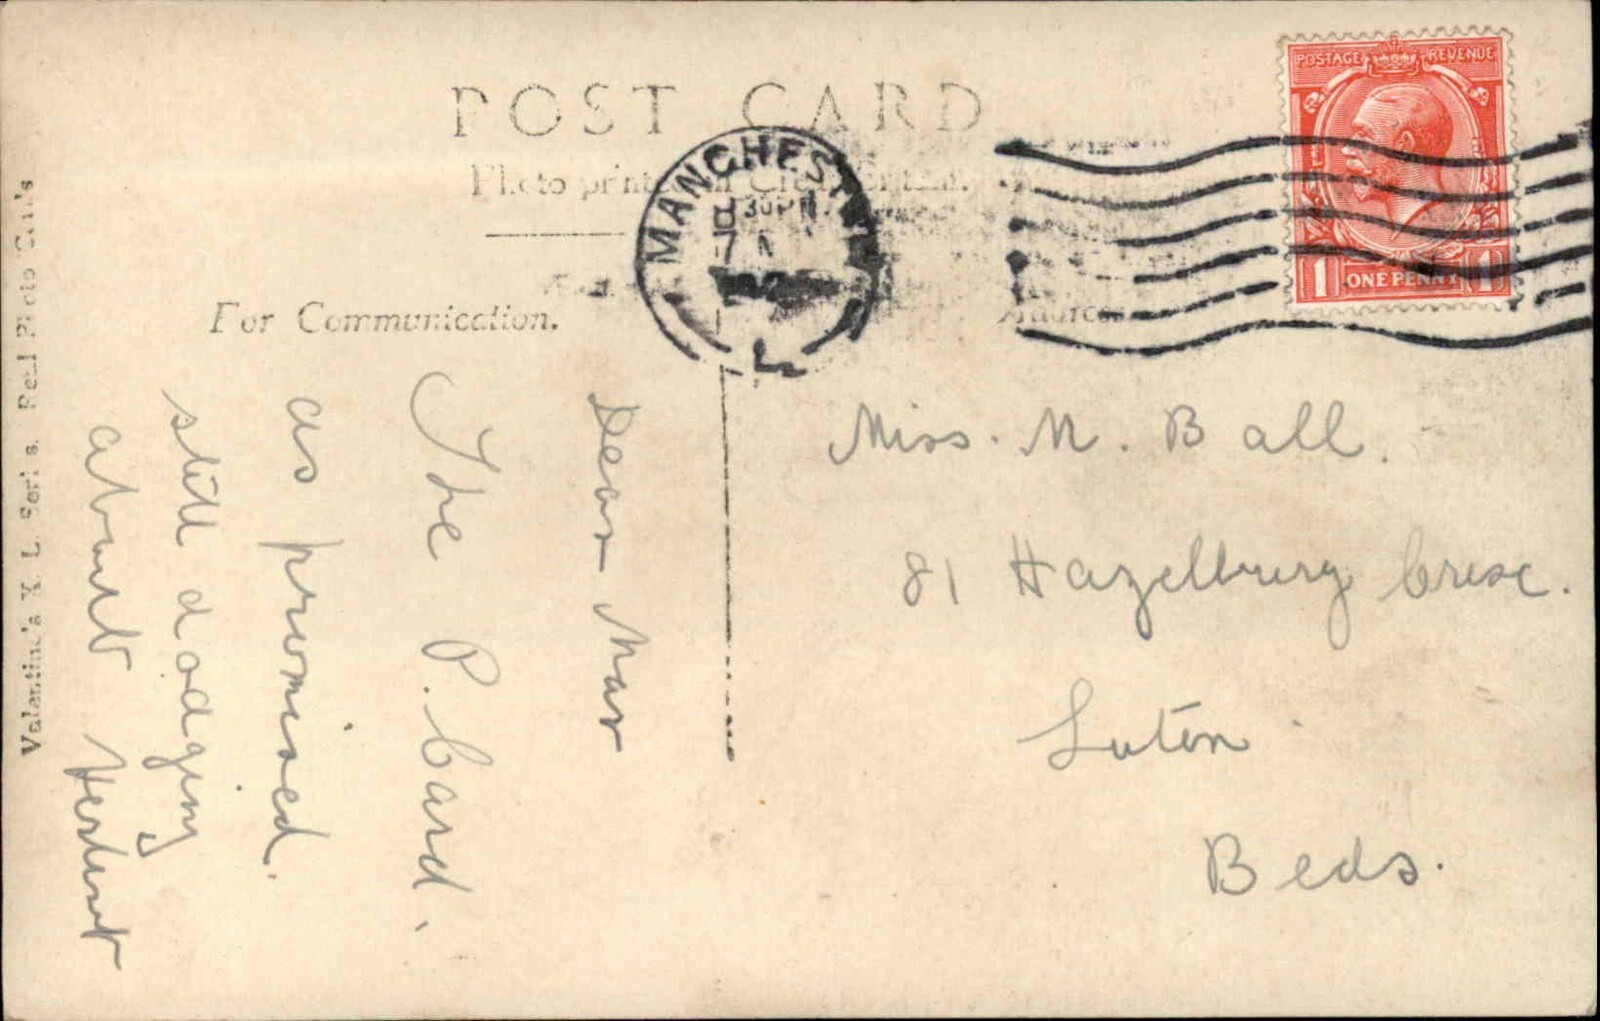 POST CARD
Photo printed in Great Britain.
For Communication.
Address
MANCHESTER
30 PM
7
POSTAGE REVENUE
1 ONE PENNY 1
Dear Mar
The P. Card.
as promised.
still dodging
about Herbert
Miss. M. Ball.
81 Hazelbury Cresc.
Luton
Beds.
Valentine's X L Series. Real Photo Cards